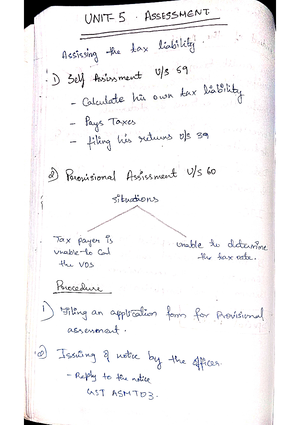 UNIT-5 . ASSESSMENT
Assissing the tax liability.
1) Self Assissment U/S 59
- Calculate his own tax liability
- Pays Taxes
- filing his returns U/S 39
2) Provisional Assissment U/S 60
situations
Tax payer is
unable to Cal
the VOS
unable to determine
the tax rate.
Procedure
1) Filing an application form for provisional
assessment.
2) Issuing of notice by the officer.
- Reply to the notice
GST ASMT03.